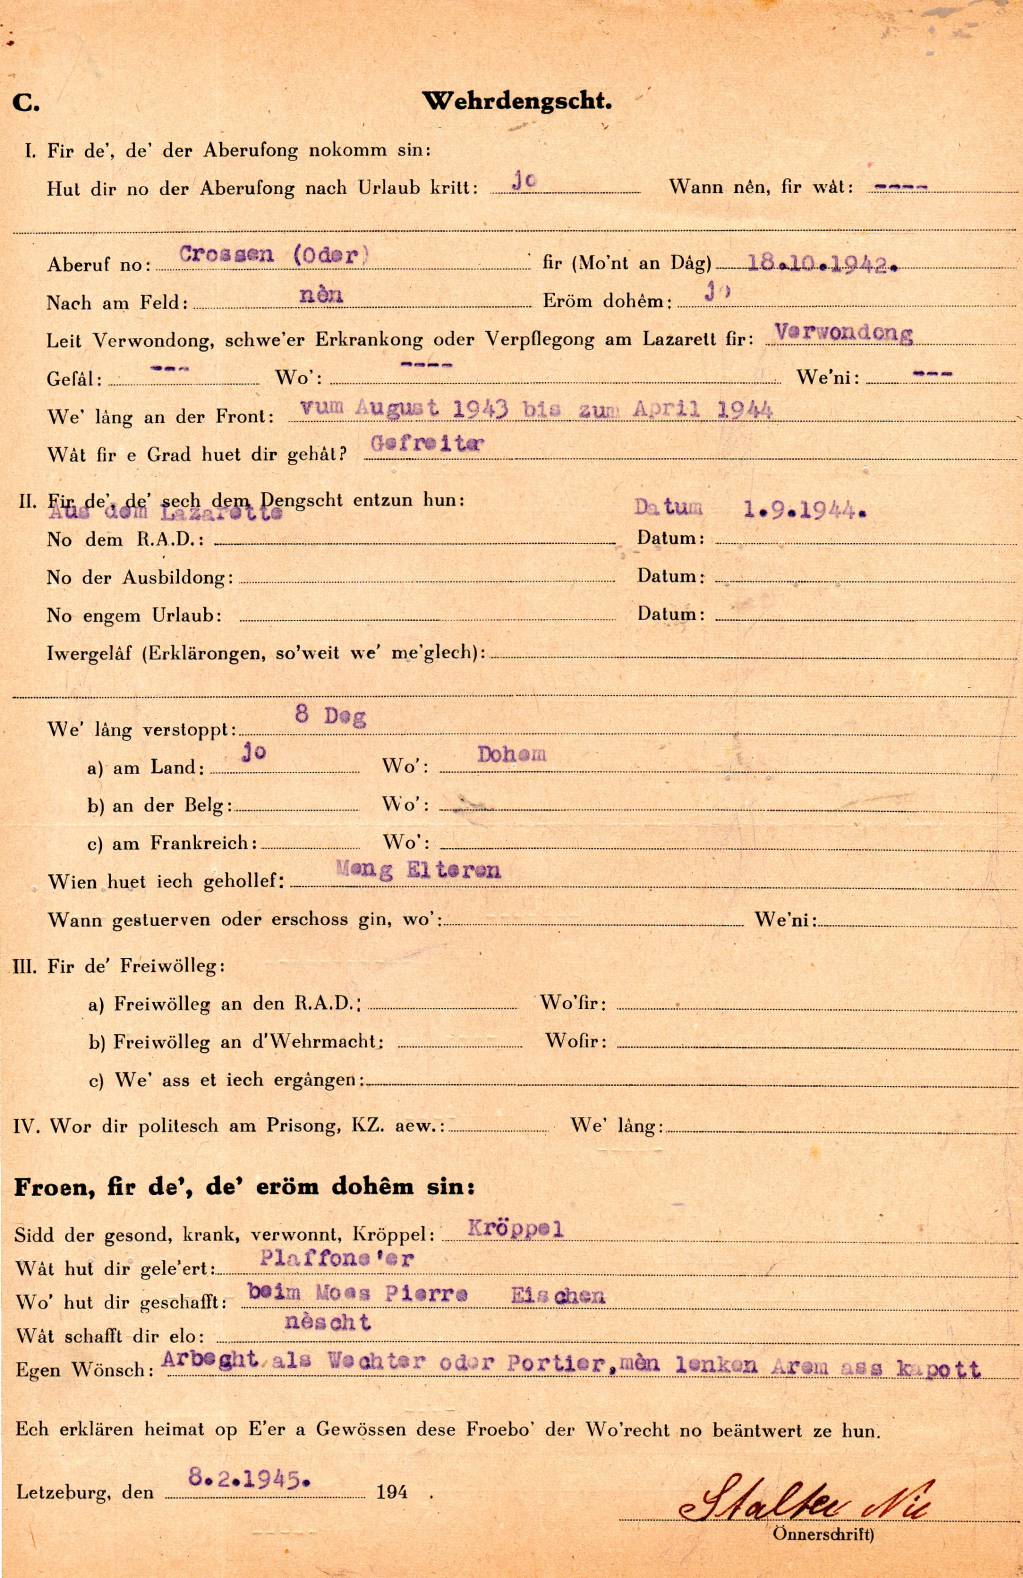 C. Wehrdengscht.
I. Fir de', de' der Aberufong nokomm sin:
Hut dir no der Aberufong nach Urlaub kritt: jo Wann nên, fir wât: ----
Aberuf no: Crossen (Oder) fir (Mo'nt an Dâg) 18.10.1942.
Nach am Feld: nèn Eröm dohêm: jo
Leit Verwondong, schwe'er Erkrankong oder Verpflegong am Lazarett fir: Verwondong
Gefâl: --- Wo': ---- We'ni: ---
We' lâng an der Front: vum August 1943 bis zum April 1944
Wât fir e Grad huet dir gehât? Gefreiter
II. Fir de', de' sech dem Dengscht entzun hun:
Aus dem Lazarette Datum 1.9.1944.
No dem R.A.D.: Datum:
No der Ausbildong: Datum:
No engem Urlaub: Datum:
Iwergelâf (Erklärongen, so'weit we' me'glech):
We' lâng verstoppt: 8 Deg
a) am Land: jo Wo': Dohem
b) an der Belg: Wo':
c) am Frankreich: Wo':
Wien huet iech gehollef: Meng Elteren
Wann gestuerven oder erschoss gin, wo': We'ni:
III. Fir de' Freiwölleg:
a) Freiwölleg an den R.A.D.: Wo'fir:
b) Freiwölleg an d'Wehrmacht: Wofir:
c) We' ass et iech ergângen:
IV. Wor dir politesch am Prisong, KZ. aew.: We' lâng:
Froen, fir de', de' eröm dohêm sin:
Sidd der gesond, krank, verwonnt, Kröppel: Kröppel
Wât hut dir gele'ert: Plaffone'er
Wo' hut dir geschafft: beim Moes Pierre Eischen
Wât schafft dir elo: nèscht
Egen Wönsch: Arbeght als Wechter oder Portier,mèn lenken Arem ass kapott
Ech erklären heimat op E'er a Gewössen dese Froebo' der Wo'recht no beäntwert ze hun.
Letzeburg, den 8.2.1945. 194 .
Stalter Nic
Önnerschrift)